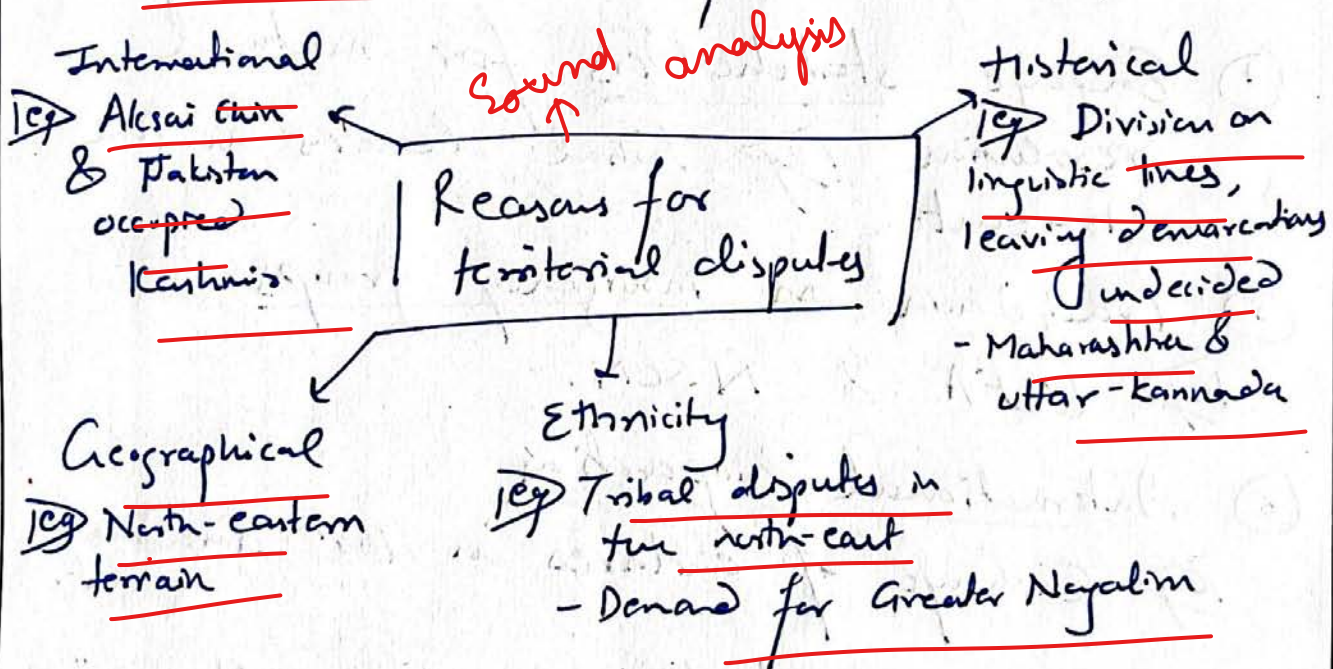 Sound analysis
International
eg Aksai Chin
& Pakistan
occupied
Kashmir.
Reasons for
territorial disputes
Historical
eg Division on
linguistic lines,
leaving demarcations
undecided
- Maharashtra &
Uttar-Kannada
Geographical
eg North-eastern
terrain
Ethnicity
eg Tribal disputes in
the north-east
- Demand for Greater Nagalim